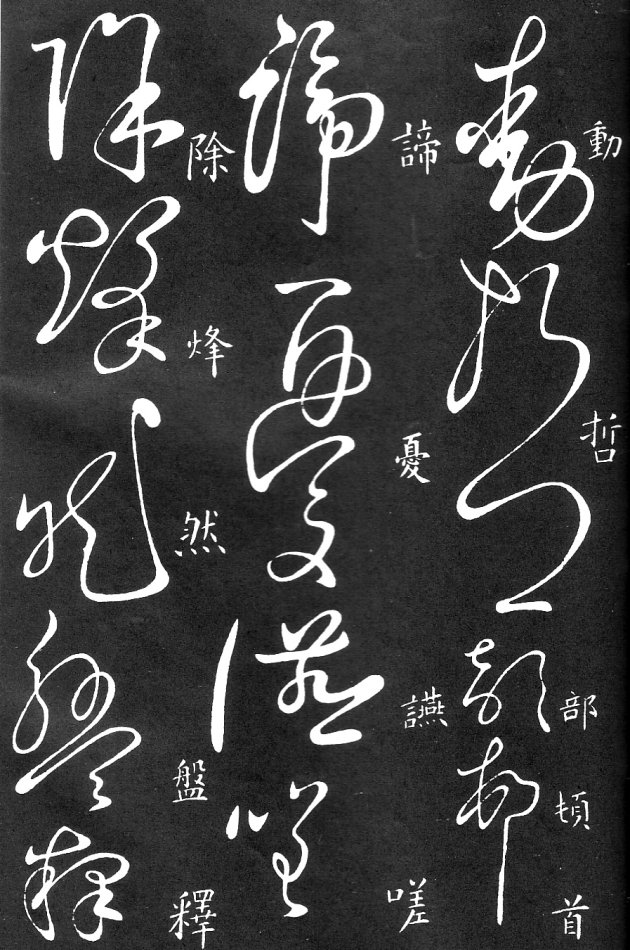 動哲部頓首
諦憂讌嗟
除烽然盤釋